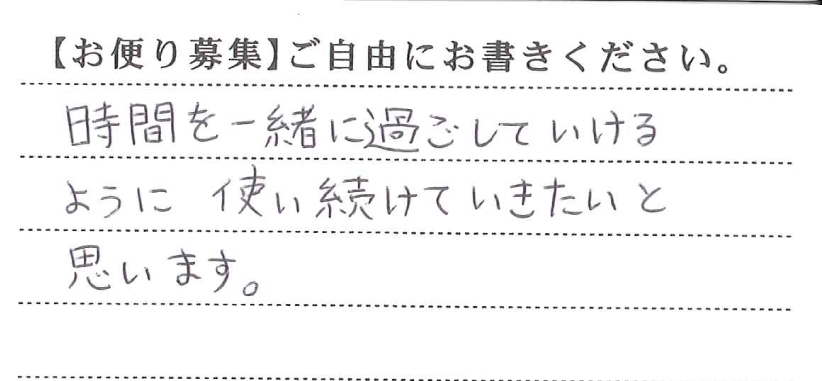 【お便り募集】ご自由にお書きください。
時間を一緒に過ごしていける
ように 使い続けていきたいと
思います。